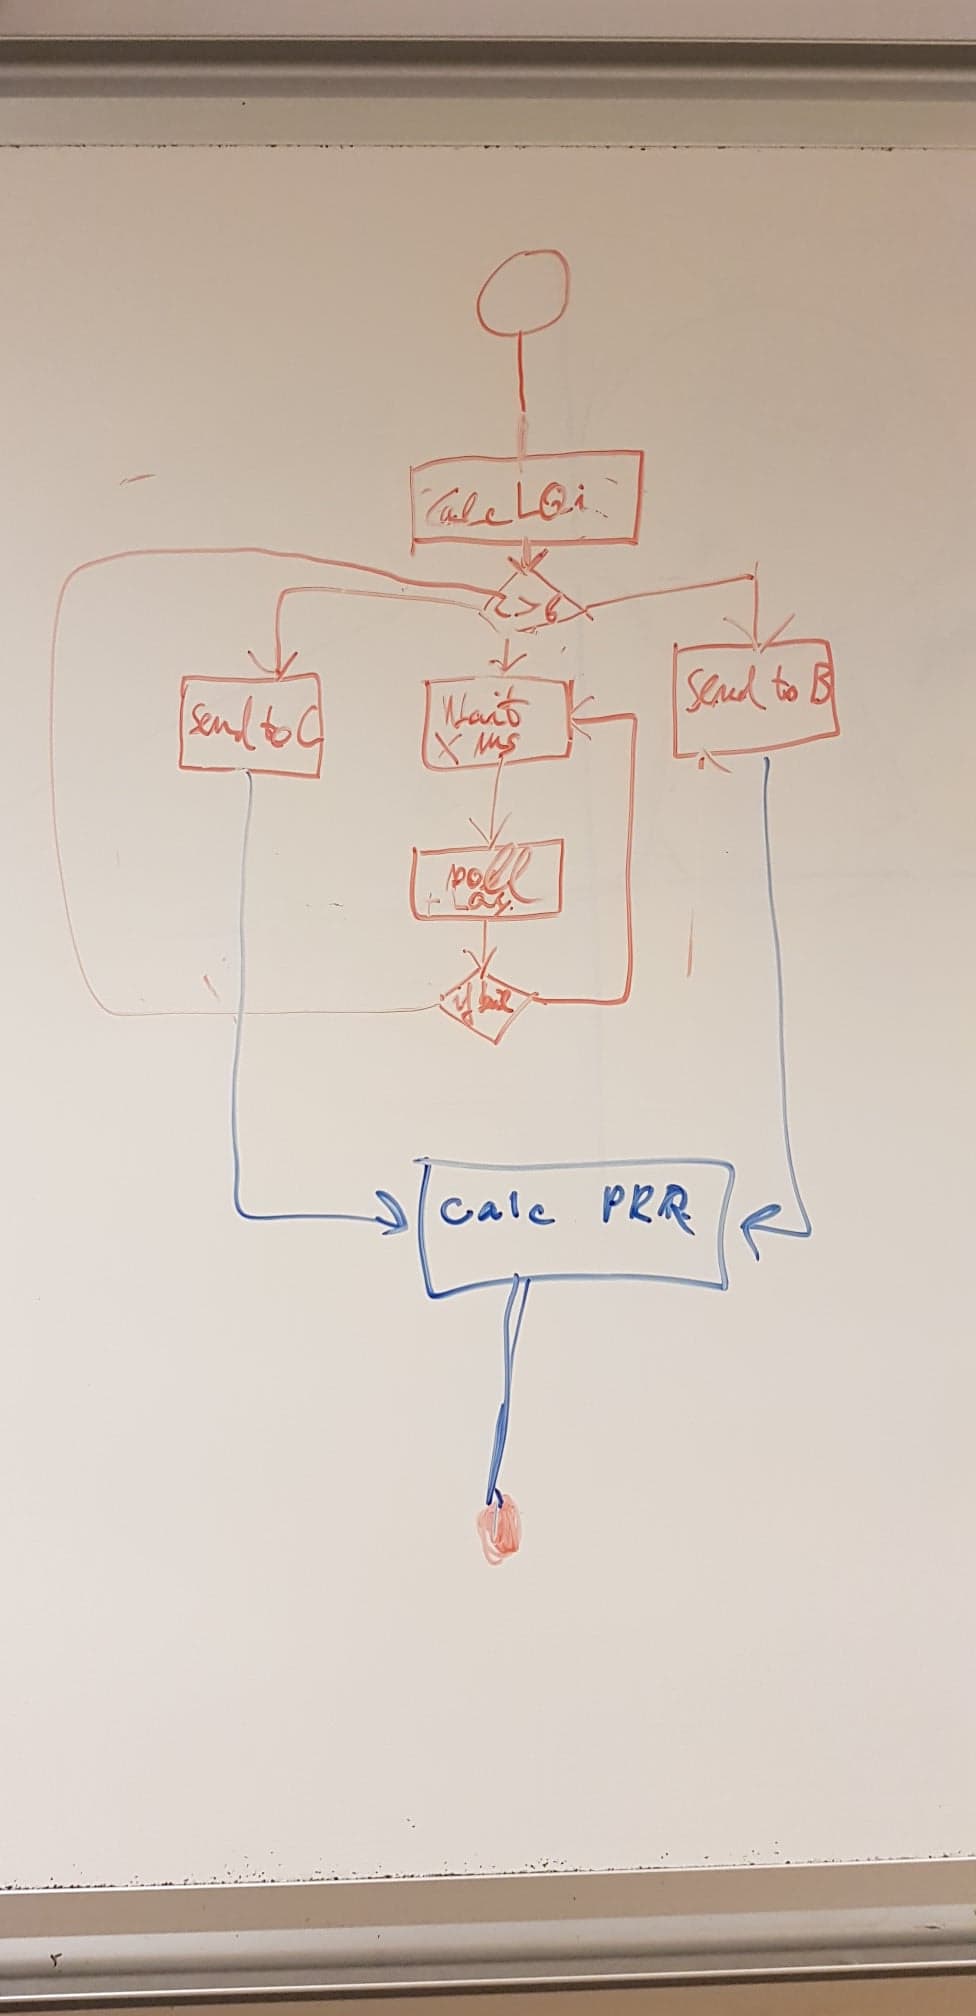 Calc LQi
Send to C
Wait
X ms
Send to B
poll
if
Calc PRR